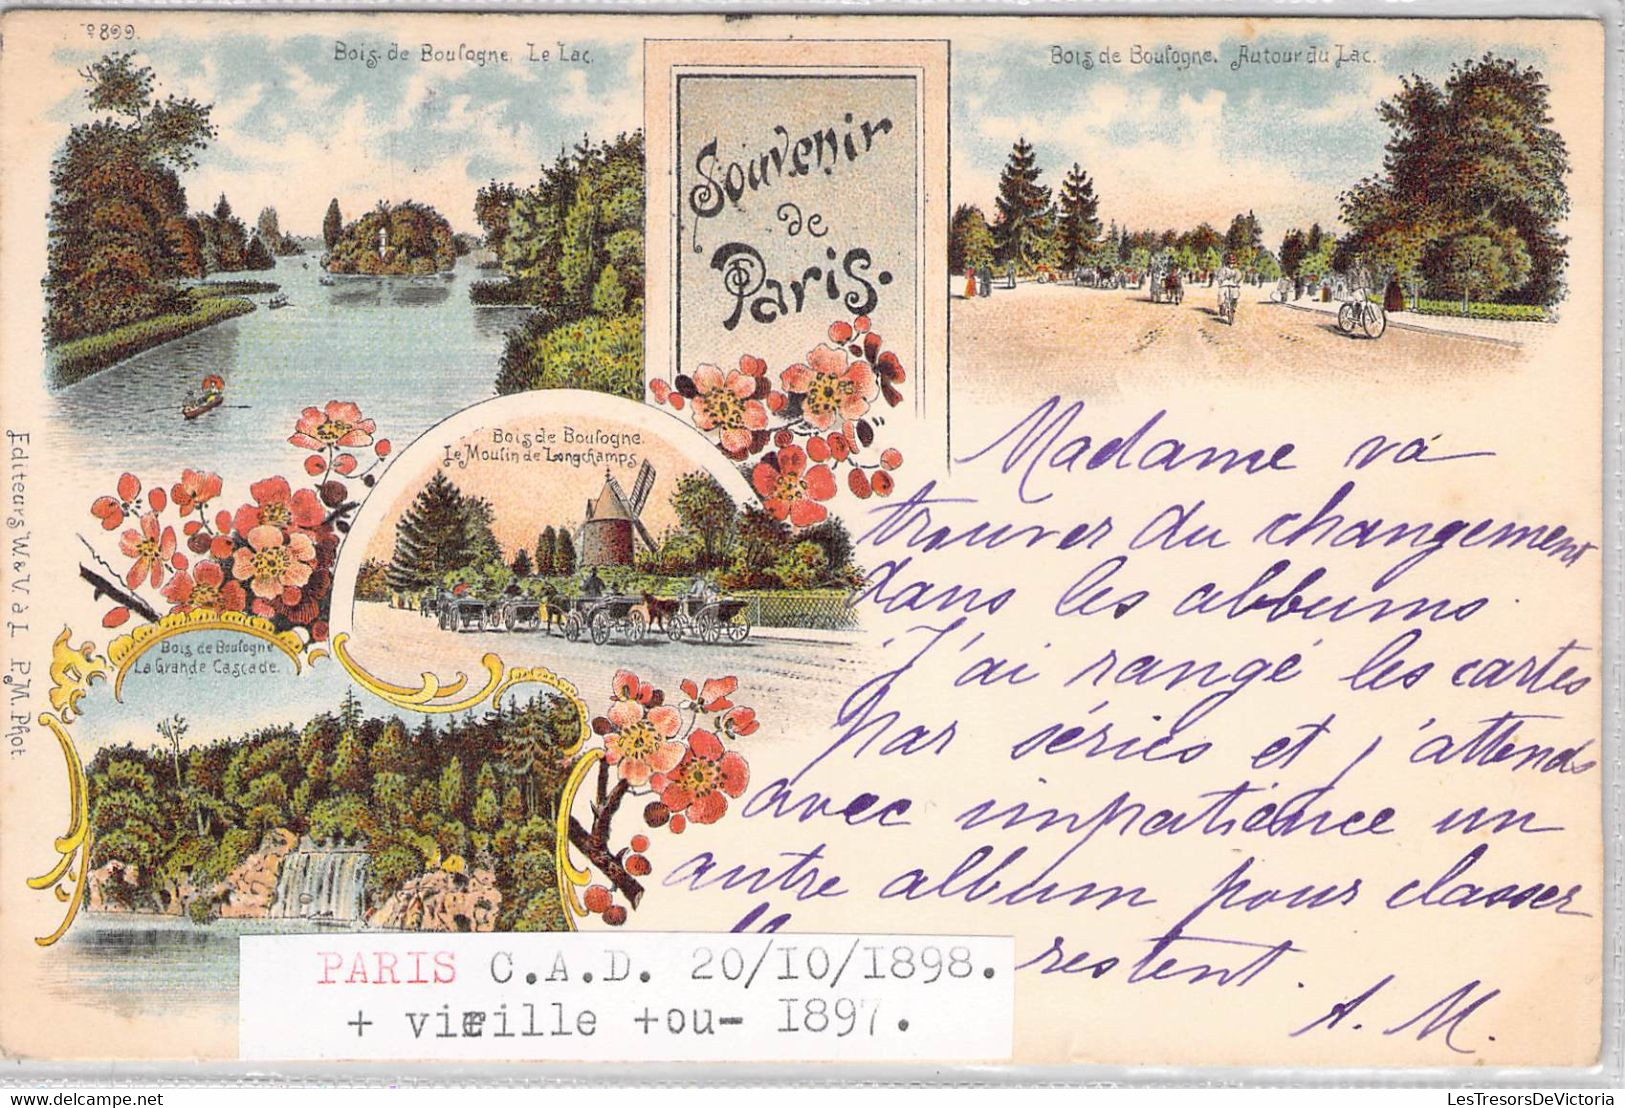 º899.
Bois de Boulogne. Le Lac.
Bois de Boulogne. Autour du Lac.
Souvenir
de
Paris.
Bois de Boulogne.
Le Moulin de Longchamps
Bois de Boulogne
La Grande Cascade.
Editeurs W. & V. à I. P. M. Phot.
Madame va
trouver du changement
dans les albums.
J'ai rangé les cartes
par séries et j'attends
avec impatience un
autre album pour classer
restent.
A. M.
PARIS C.A.D. 20/IO/I898.
+ vieille +ou- I897.
LesTresorsDeVictoria
LesTresorsDeVictoria